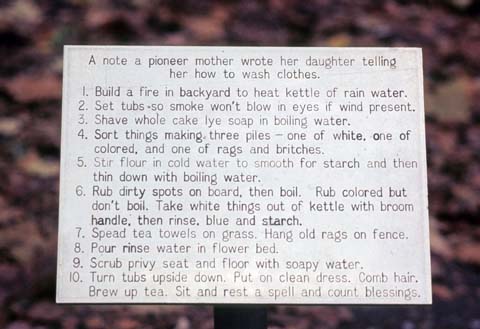 A note a pioneer mother wrote her daughter telling
her how to wash clothes.
1. Build a fire in backyard to heat kettle of rain water.
2. Set tubs so smoke won't blow in eyes if wind present.
3. Shave whole cake lye soap in boiling water.
4. Sort things making three piles - one of white, one of
colored, and one of rags and britches.
5. Stir flour in cold water to smooth for starch and then
thin down with boiling water.
6. Rub dirty spots on board, then boil. Rub colored but
don't boil. Take white things out of kettle with broom
handle, then rinse, blue and starch.
7. Spead tea towels on grass. Hang old rags on fence.
8. Pour rinse water in flower bed.
9. Scrub privy seat and floor with soapy water.
10. Turn tubs upside down. Put on clean dress. Comb hair.
Brew up tea. Sit and rest a spell and count blessings.